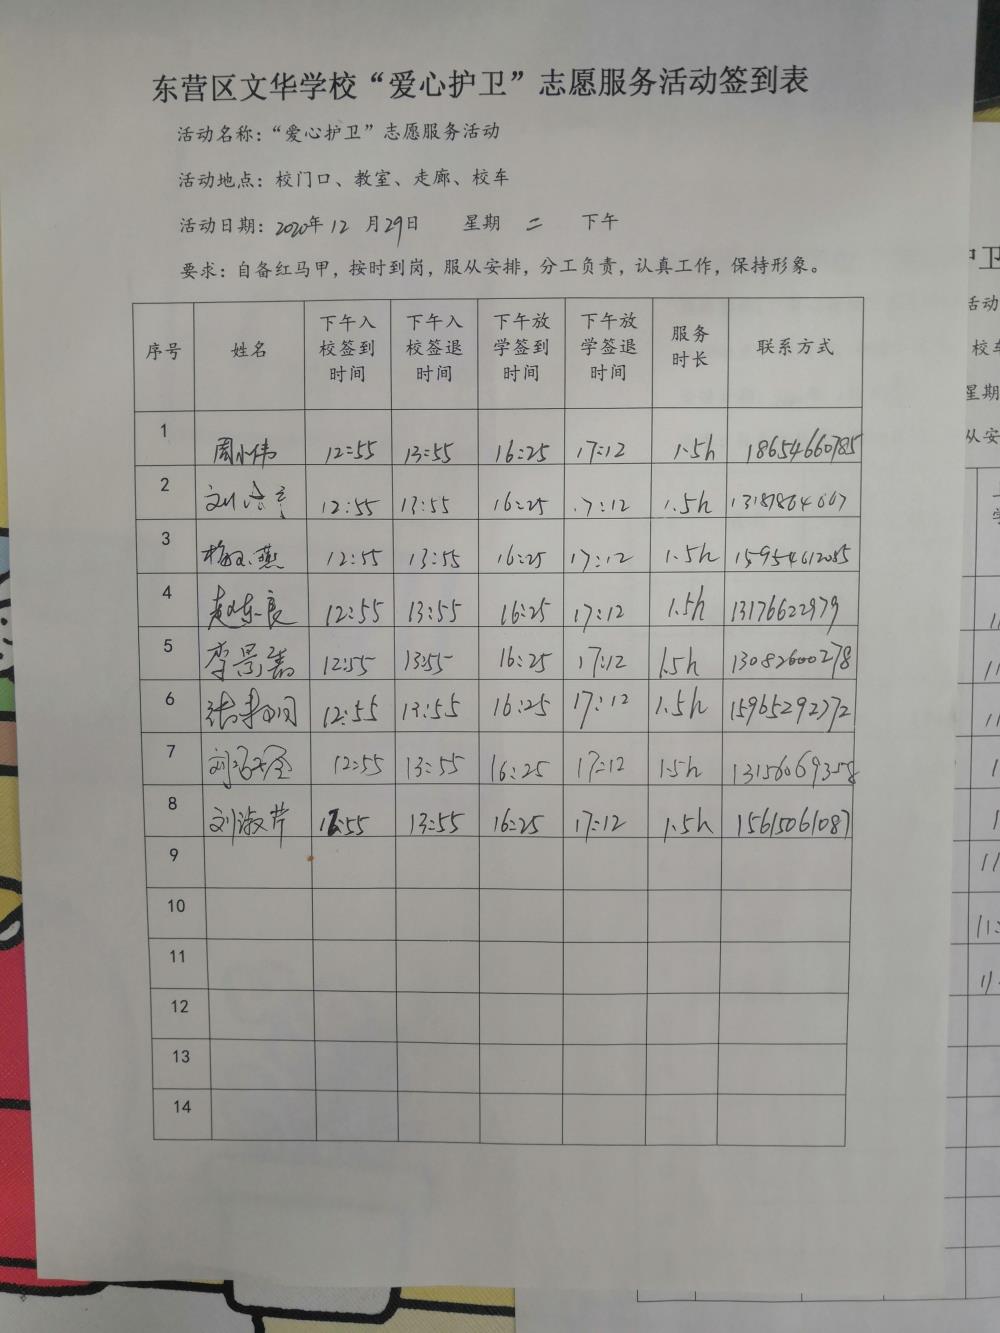 东营区文华学校“爱心护卫”志愿服务活动签到表
活动名称：“爱心护卫”志愿服务活动
活动地点：校门口、教室、走廊、校车
活动日期：2020年 12 月29日 星期 二 下午
要求：自备红马甲，按时到岗，服从安排，分工负责，认真工作，保持形象。
序号 姓名 下午入校签到时间 下午入校签退时间 下午放学签到时间 下午放学签退时间 服务时长 联系方式
1 周小伟 12:55 13:55 16:25 17:12 1.5h 18654660785
2 12:55 13:55 16:25 17:12 1.5h
3 12:55 13:55 16:25 17:12 1.5h 15954612085
4 赵东良 12:55 13:55 16:25 17:12 1.5h 13176622979
5 李景嘉 12:55 13:55 16:25 17:12 1.5h 13082600278
6 12:55 13:55 16:25 17:12 1.5h 15965292372
7 12:55 13:55 16:25 17:12 1.5h 13156069358
8 刘淑芹 12:55 13:55 16:25 17:12 1.5h 15615061087
9
10
11
12
13
14